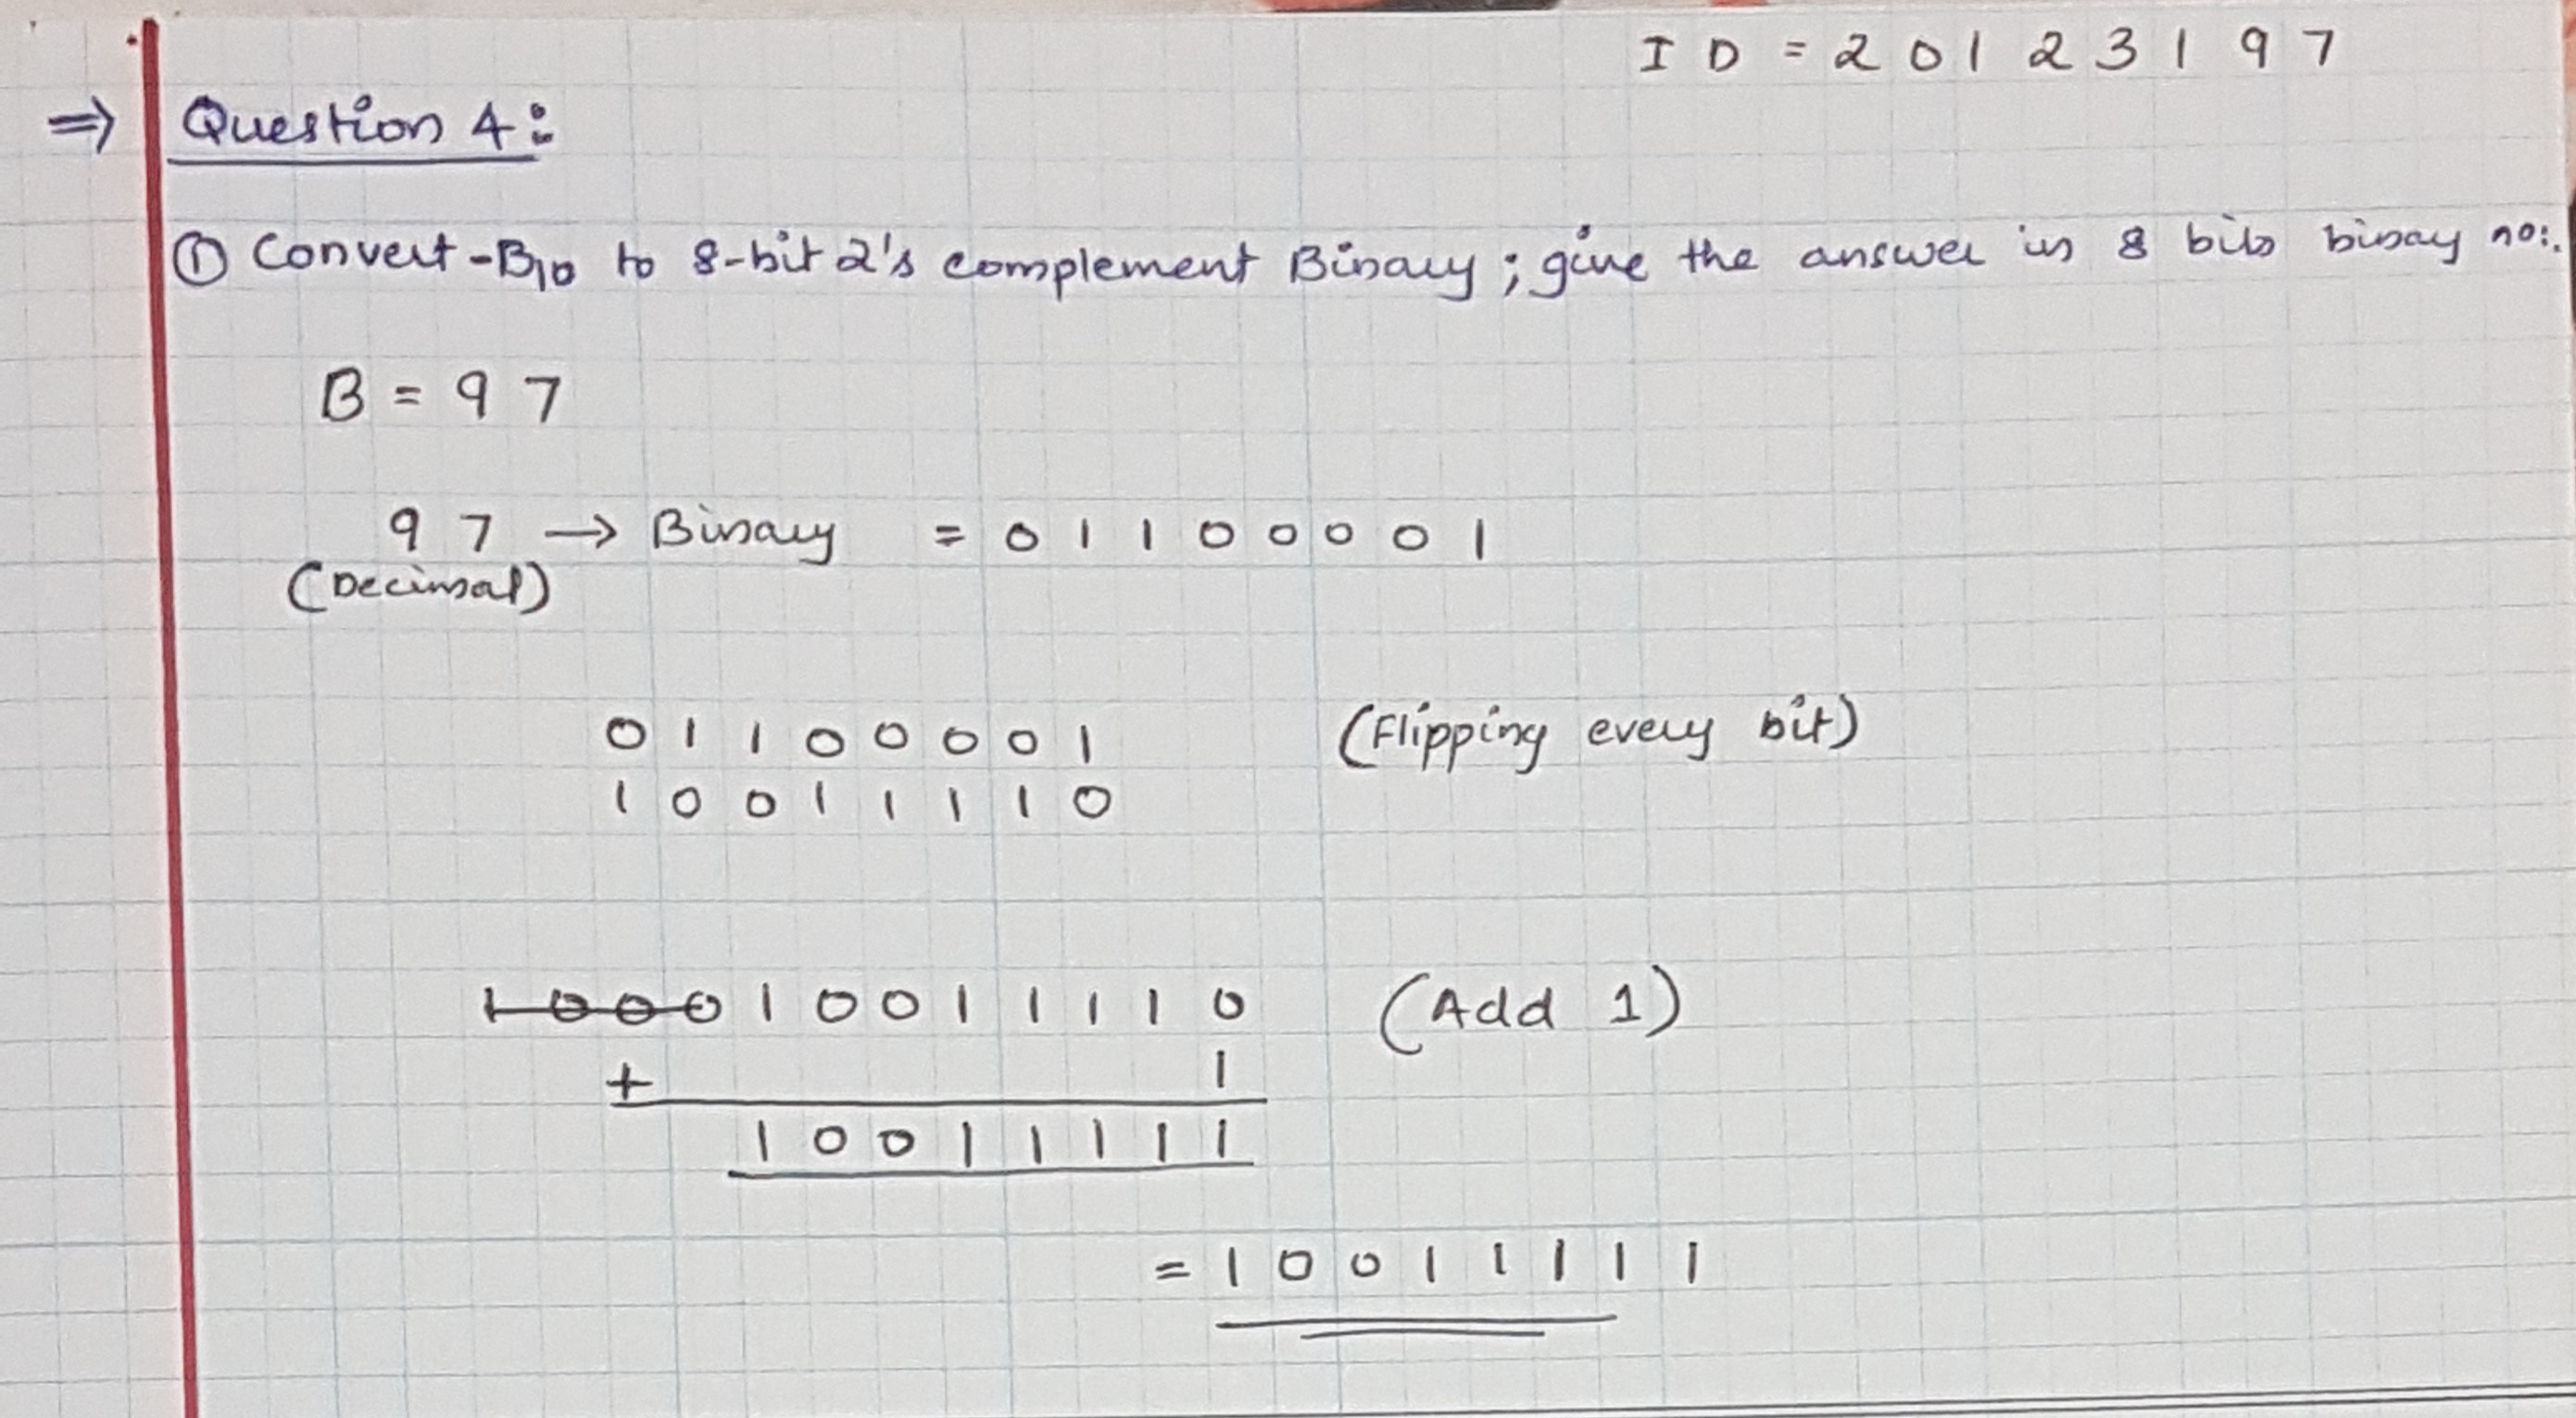 ID = 20123197
⇒ Question 4:
① Convert -B₁₀ to 8-bit 2's complement Binary; give the answer in 8 bits binay no:.
B = 97
97 → Binary = 01100001
(Decimal)
01100001 (Flipping every bit)
10011110
1000 10011110 (Add 1)
+ 1
10011111
= 10011111